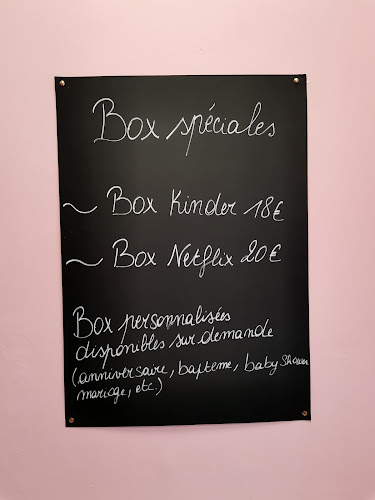 Box spéciales
~ Box Kinder 18€
~ Box Netflix 20€
Box personnalisées
disponibles sur demande
(anniversaire, bapteme, baby shower
mariage, etc.)